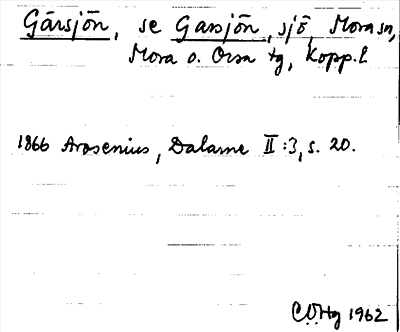 Gårsjön, se Garsjön, sjö, Mora sn,
Mora o. Orsa tg, Kopp. l.
1866 Arosenius, Dalarne II:3, s. 20.
COHg 1962